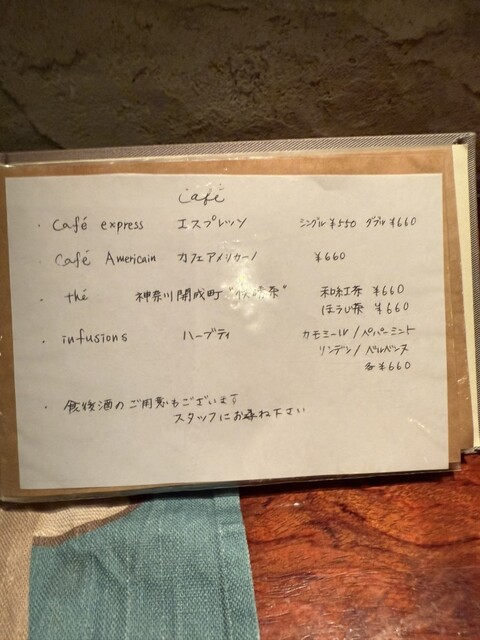 Café
・ Café express エスプレッソ シングル ¥550 ダブル ¥660
・ Café Americain カフェアメリカーノ ¥660
・ thé 神奈川開成町 和紅茶 ¥660
ほうじ茶 ¥660
・ infusions ハーブティ カモミール / ペパーミント
リンデン / ベルベンヌ
各 ¥660
・ 食後酒のご用意もございます
スタッフにお尋ね下さい